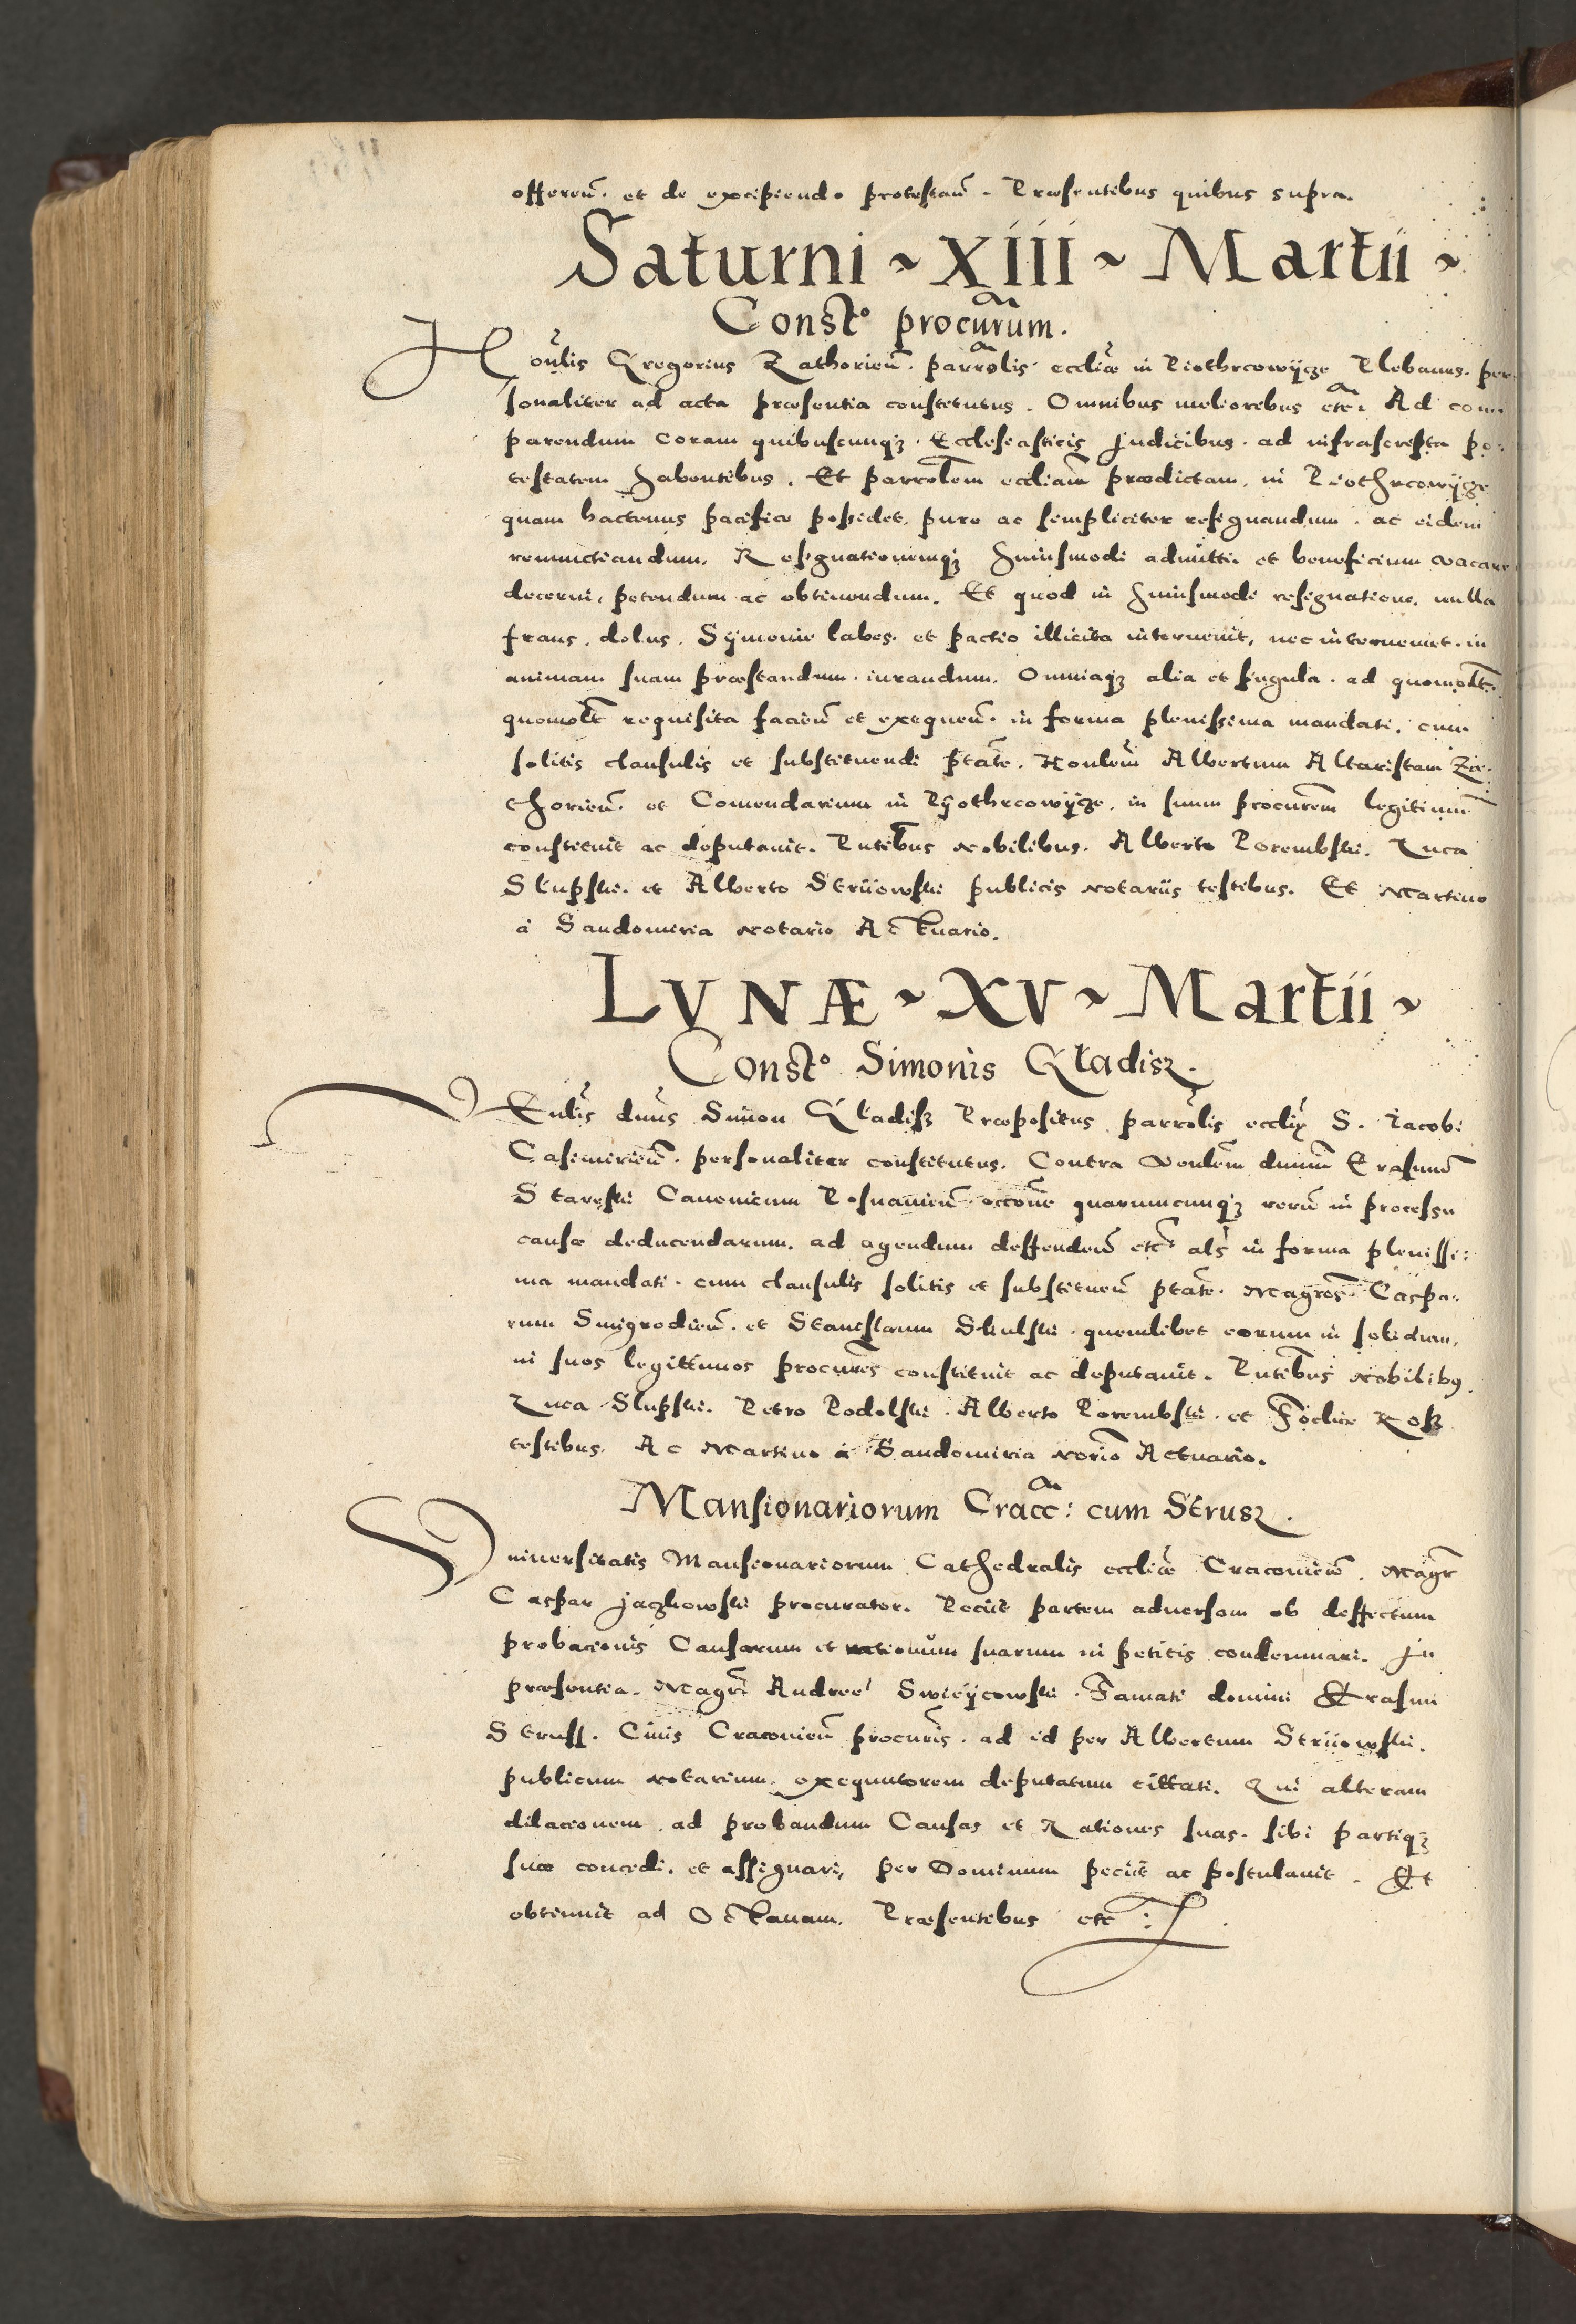 offereñ. et de excipiendo protestañ. Præsentibus quibus supra.
Saturni ~ XIII ~ Martii ~
Constº procurum.
Hoñlis Gregorius Zathorień. parrolis eccliæ in Piothrcowÿcze Plebanus. per
sonaliter ad acta præsentia constitutus. Omnibus melioribus etc. Ad com
parendum coram quibuscunqꝫ Ecclesiasticis Judicibus ad infrascripta po:
testatem habentibus. Et parrolem eccliam prædictam, in Piothrcowÿcze
quam hactenus pacifice possidet, pure ac simpliciter resignandum. ac eidem
renunctiandum, Resignationemqꝫ huiusmodi admitti. et beneficium vacare
decerni, petendum ac obtinendum. Et quod in huiusmodi resignatione, nulla
fraus, dolus, Sÿmonie labes. et pactio illicita interuenit, nec interueniet. in
animam suam præstandum. iurandum. Omniaqꝫ alia et singula. ad quomolt.
quomolt requisita facieñ et exequeñ. in forma plenissima mandati, cum
solitis clausulis et substituendi ptate. Honlem Albertum Altaristam Za:
thorień. et Comendarium in Pÿothrcowÿcze, in suum procurem legitimum
constituit ac deputauit. Pntibus nobilibus. Alberto Porembski. Luca
Slupski. et Alberto Striiowski publicis notariis testibus. Et Martino
à Sandomiria notario Actuario.
LVNÆ ~ XV ~ Martii ~
Constº Simonis Gladisz.
Venlis dnus Simon Gladisz Præpositus parrolis eccliæ S. Jacobi
Casimirień. personaliter constitutus. Contra Venlem dnum Erasmum
Stareski Canonicum Posnanień occone quarumcunqꝫ rerum in processu
causæ deducendarum. ad agendum deffendeñ etc als in forma plenissi:
ma mandati. cum clausulis solitis et substitueñ ptate. Magros Caspa:
rum Smigrodień. et Stanislaum Skulski. quemlibet eorum in solidum,
in suos legittimos procures constituit ac deputauit. Pntibus nobilibꝰ.
Luca Slupski. Petro Podolski. Alberto Porembski. et Foelice Rosz
testibus. Ac Martino à Sandomiria norio Actuario.
Mansionariorum Cracc: cum Strusz.
Vniuersitatis Mansionariorum Cathedralis eccliæ Cracouień. Magr
Caspar Jaczkowski procurator. Peciit partem aduersam ob deffectum
probacionis Causarum et rationum suarum in petitis condemnari. In
præsentia. Magri Andreé Swieÿcowski. Famati domini Erasmi
Struss. Ciuis Cracouień procuris. ad id per Albertum Striiowski.
publicum notarium, exequutorem deputatum cittati. Qui alteram
dilacionem, ad probandum Causas et Rationes suas. sibi partiqꝫ
suæ concedi. et assignari, per Dominum peciit ac postulauit. Et
obtinuit ad Octauam. Præsentibus etc: